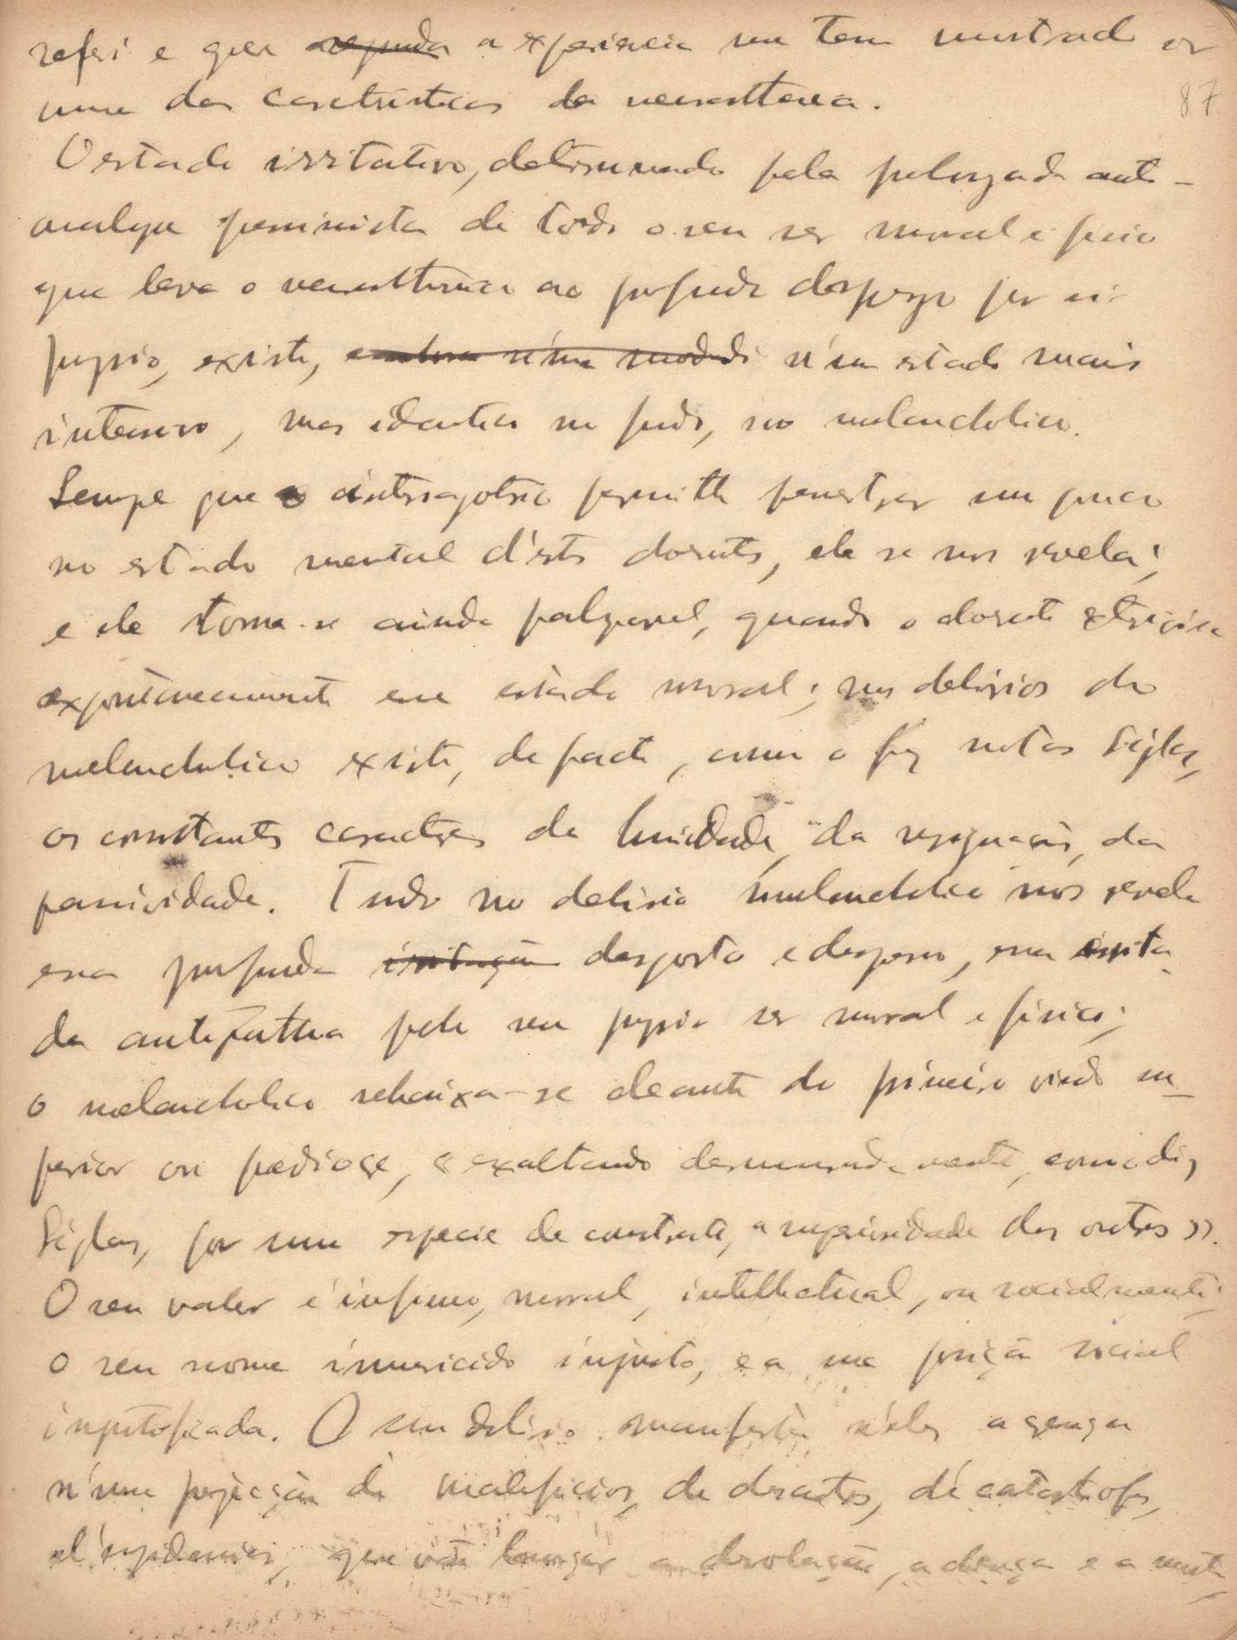 referi e que segundo a experiencia me tem mostrado ser
87
uma das caracteristicas da neurasthenia.
O estado irritativo, determinado pela prolongada auto-
analyse pessimista de todo o seu ser moral e fisico
que leva o neurasthenico ao profundo desprezo por si
proprio, existe, embora n'um modo di n'um estado mais
intensivo, mas identico no fundo, no melancholico.
Sempre que o interrogatorio permitte penetrar um pouco
no estado mental d'estes doentes, ele se nos revela;
e ele torna-se ainda palpavel, quando o doente exterioriza
expontaneamente seu estado moral; nos delirios do
melancholico existe, de facto, como o fez notar Séglas,
os constantes caracteres da humildade, da resignação, da
passividade. Tudo no delirio melancholico nos revela
esse profundo irritação desgosto e desprezo, essa
da antipathia pelo seu proprio ser moral e fisico;
o melancholico rebaixa-se deante do primeiro vindo su-
perior ou mediocre, exaltando desmesuradamente, como diz
Séglas, por uma especie de contraste, "a superioridade dos outros".
O seu valor é infimo, moral, intellectual, ou socialmente;
o seu nome immerecido injusto, e a sua posição social
injustificada. O seu delirio manifesta n'eles a crença
n'uma projecção de maleficios, de desastres, de catastrofes,
d'epidemias, que vão lançar a desolação, a doença e a morte,